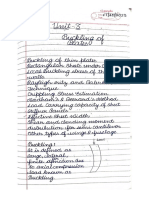 Unit-3
Buckling of
Plates
Buckling of thin plate
Rectangular sheet under
Local buckling stress of thin
walls
Rayleigh ritz and
Technique
Crippling stress estimation
Needham's & Gerard's method
Load carrying capacity of sheet
stiffener Panel
Effective sheet width
Shear and bending moment
distribution for semi cantilever
other types of wing beam
Buckling:
It is defined as
large lateral
deflection
to axial compression
load known as
Buckling.